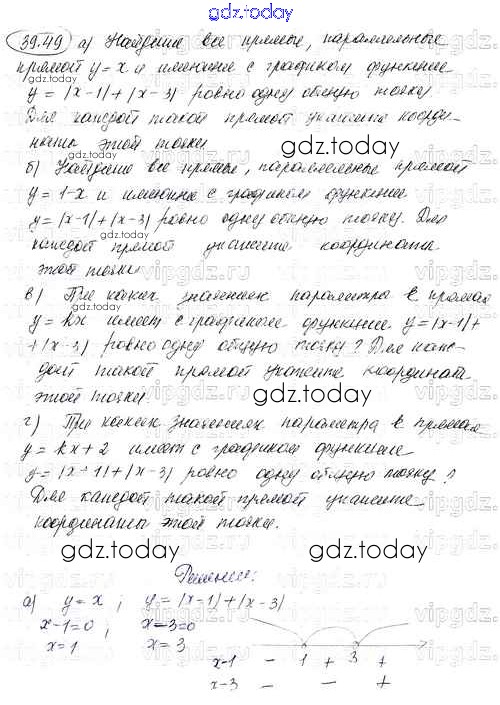 gdz.today
39.49 а) Найдите все прямые, параллельные
прямой y = x и имеющие с графиком функции
gdz.today
y = |x-1| + |x-3| ровно одну общую точку.
Для каждой такой прямой укажите коорди-
наты этой точки.
gdz.today
б) Найдите все прямые, параллельные прямой
y = 1-x и имеющие с графиком функции
y = |x-1| + |x-3| ровно одну общую точку. Для
каждой прямой укажите координаты
этой точки.
vipgdz.ru
в) При каких значениях параметра k прямая
y = kx имеет с графиком функции y = |x-1| +
+ |x-3| ровно одну общую точку? Для каж-
дой такой прямой укажите координаты
этой точки.
gdz.today
г) При каких значениях параметра k прямая
y = kx + 2 имеет с графиком функции
y = |x-1| + |x-3| ровно одну общую точку?
Для каждой такой прямой укажите
координаты этой точки.
gdz.today gdz.today
Решение:
а) y = x ; y = |x-1| + |x-3|
x-1=0 ; x-3=0
x=1 x=3
x-1 - 1 + 3 +
x-3 - - +